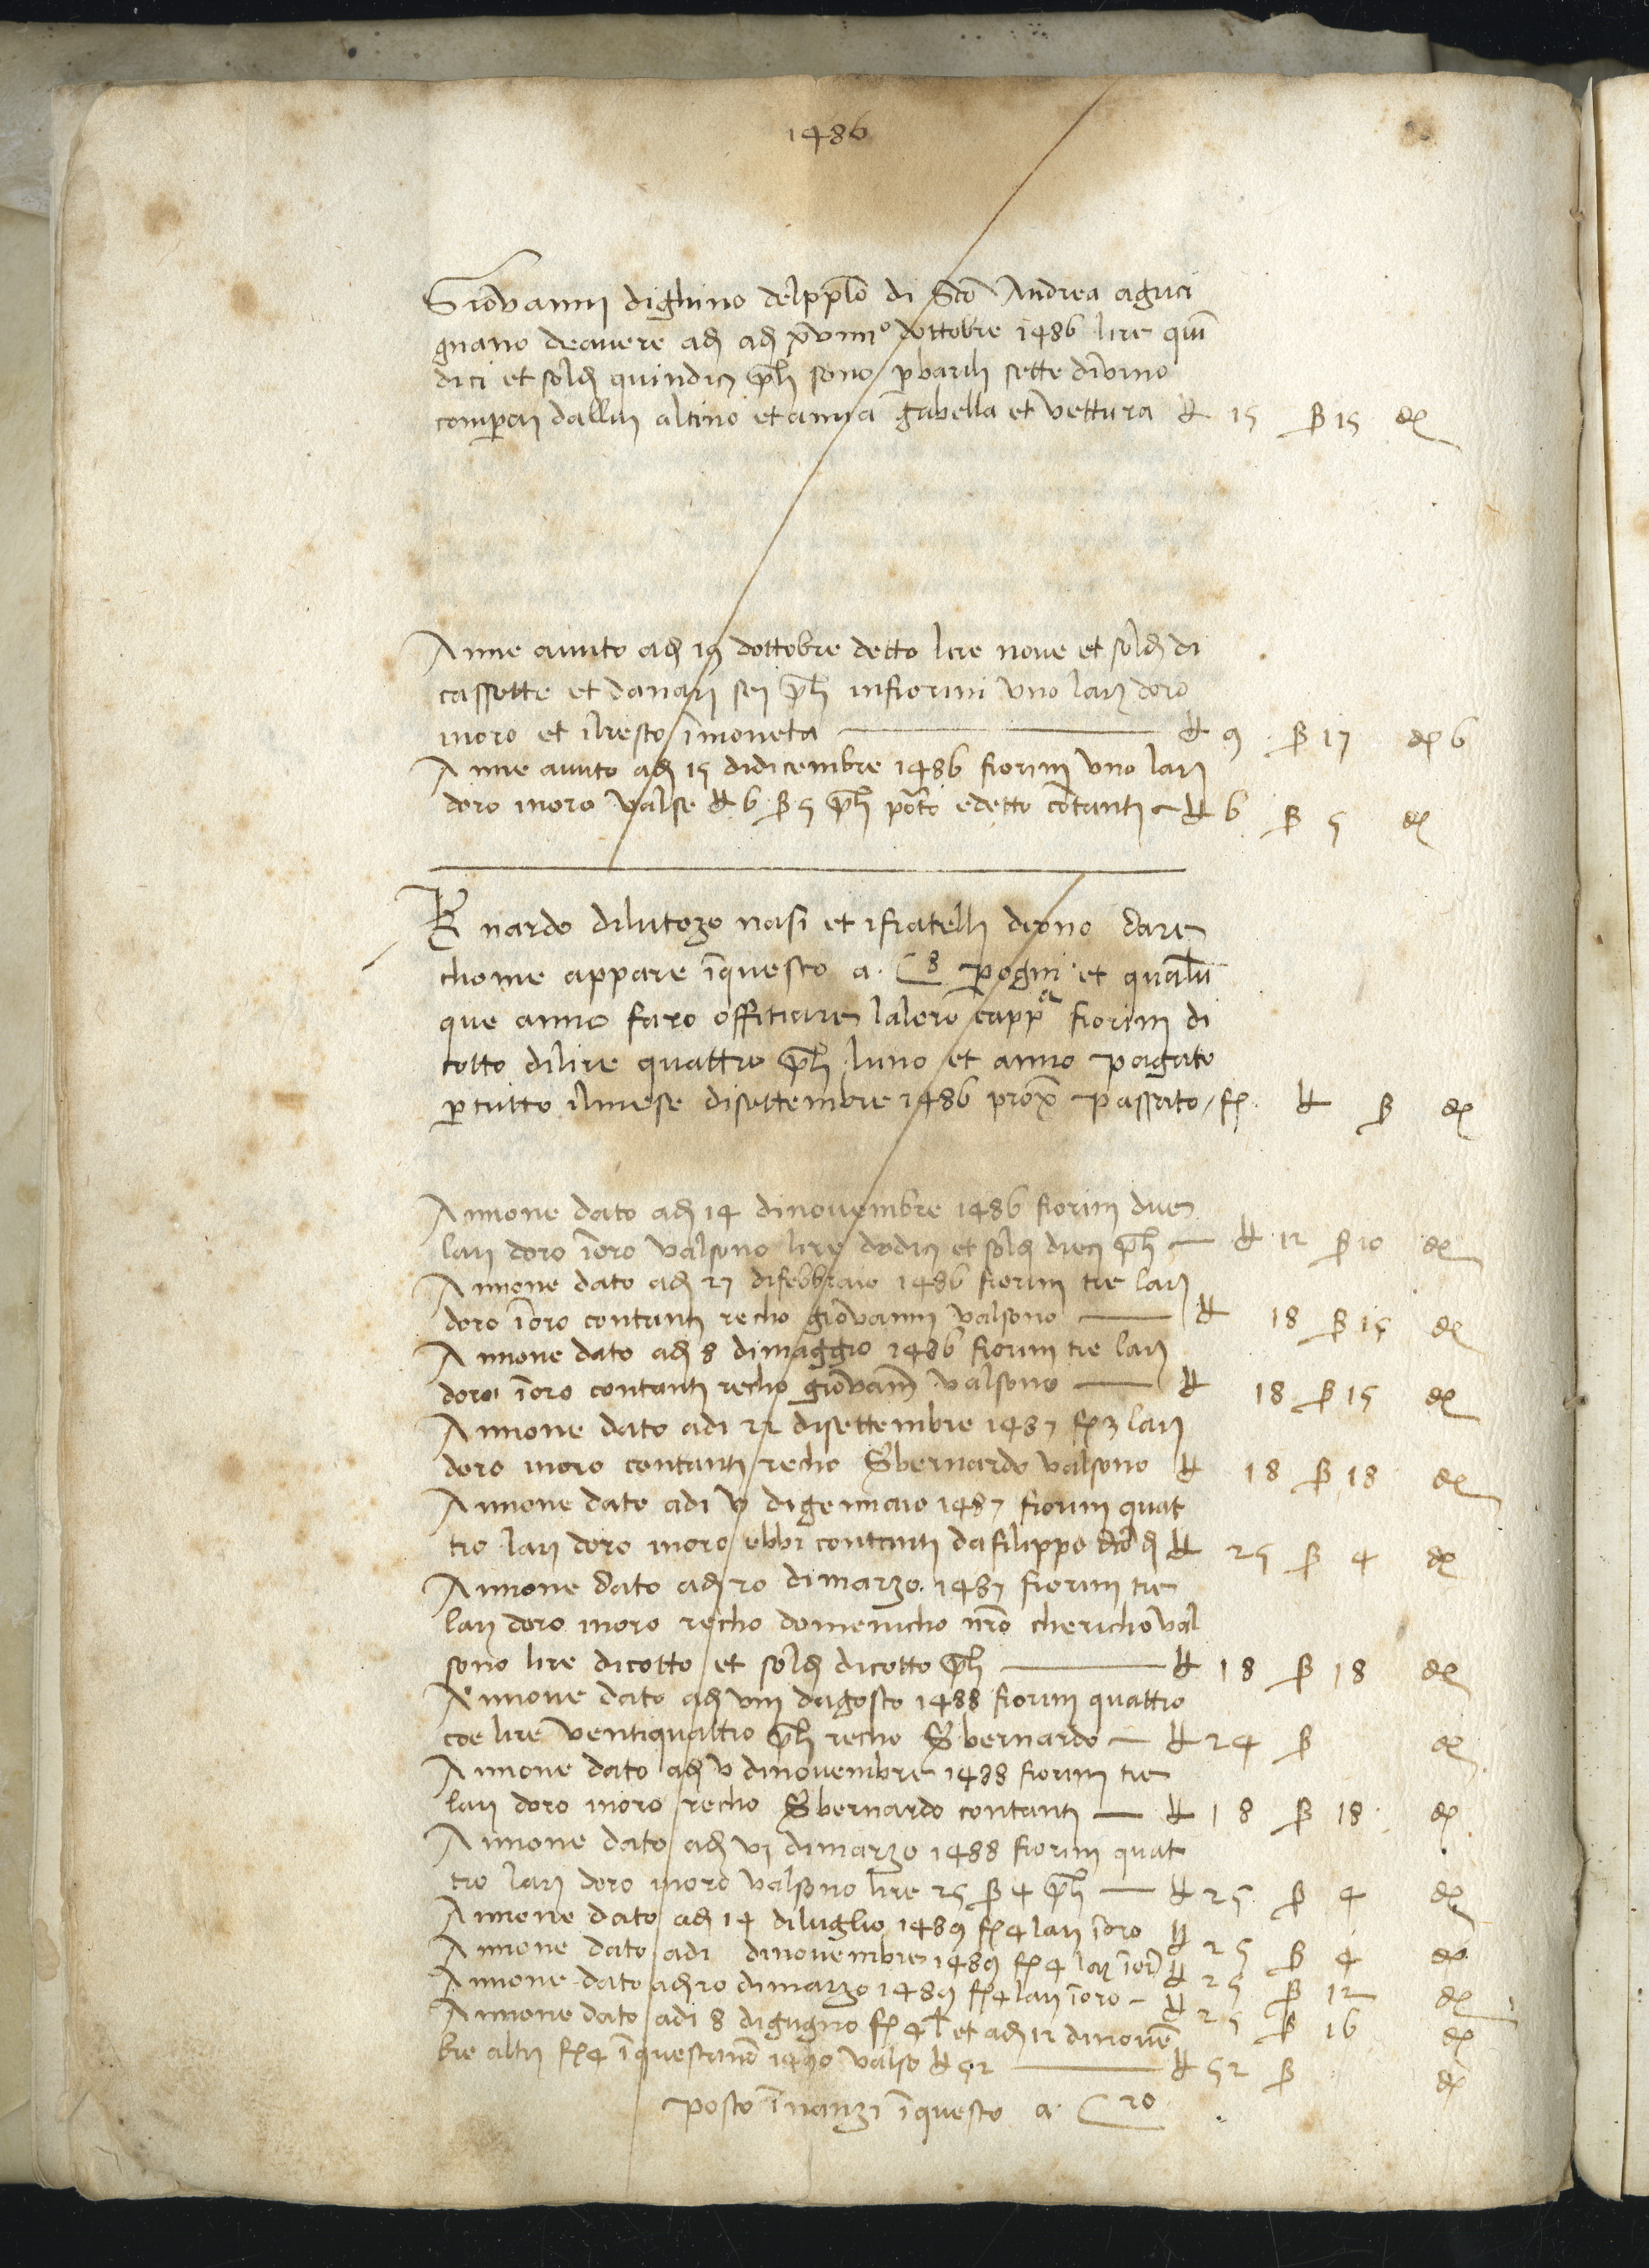 1486
Giovanni dighino delpplo di Sco Andrea aguci
gnano deavere adj adj xviiii° dottobre 1486 lire quī
dici et soldj quindicj pch sono p barili sette divino
comperaj dallui altino et amia gabella et vettura £ 15 ß 15 d
Anne auuto adj 19 dottobre detto lire nove et soldj di
cassette et danarj sej pch infiorini uno larj doro
inoro et ilresto īmoneta £ 9 ß 17 d 6
Anne auuto adj 15 didicembre 1486 fiorinj uno larj
doro inoro valse £ 6 ß 5 pch porto edetto cōtantj £ 6 ß 5 d
Bnardo dilutozo nasi et ifratelli deono dare
chome appare īquesto a C 8 p ogni et qualū
que anno faro offitiare laloro cappa fiorinj di
cotto dilire quattro pch luno et anno pagato
p tutto ilmese disettembre 1486 prox passato f £ ß d
Annone dato adj 14 dinovembre 1486 fiorinj due
larj doro īoro valsono lire dodicj et soldj diecj pch £ 12 ß 10 d
Annone dato adj 27 difebbraio 1486 fiorinj tre larj
doro īoro contantj recho giovannj valsono £ 18 ß 15 d
Annone dato adj 8 dimaggio 1486 fiorinj tre larj
doro īoro contantj recho giovānj valsono £ 18 ß 15 d
Annone dato adi 22 disettembre 1487 f 3 larj
doro inoro contantj recho S bernardo valsono £ 18 ß 18 d
Annone dato adi v digennaio 1487 fiorinj quat
tro larj doro inoro ebbi contantj dafilippo dcō dj £ 25 ß 4 d
Annone dato adj 20 dimarzo 1487 fiorinj tre
larj doro inoro recho domenicho nrō chericho val
sono lire dicotto et soldj dicotto pch £ 18 ß 18 d
Annone dato adj viii dagosto 1488 fiorinj quattro
coe lire ventiquattro pch recho S bernardo £ 24 ß d
Annone dato adj v dinovembre 1488 fiorinj tre
larj doro inoro recho S bernardo contantj £ 18 ß 18 d
Annone dato adj vj dimarzo 1488 fiorinj quat
tro larj doro inoro valsono lire 25 ß 4 pch £ 25 ß 4 d
Annone dato adj 14 diluglio 1489 f 4 larj īoro £ 25 ß 4 d
Annone dato adi dinovembre 1489 f 4 larj īoro £ 25 ß 12 d
Annone dato adj 20 dimarzo 1489 f 4 larj īoro £ 25 ß 16 d
Annone dato adi 8 digugno f 4 l et adj 12 dinovē
bre altrj f 4 īquestanno 1490 valse £ 52 £ 52 ß d
posto īnanzi īquesto a C 20